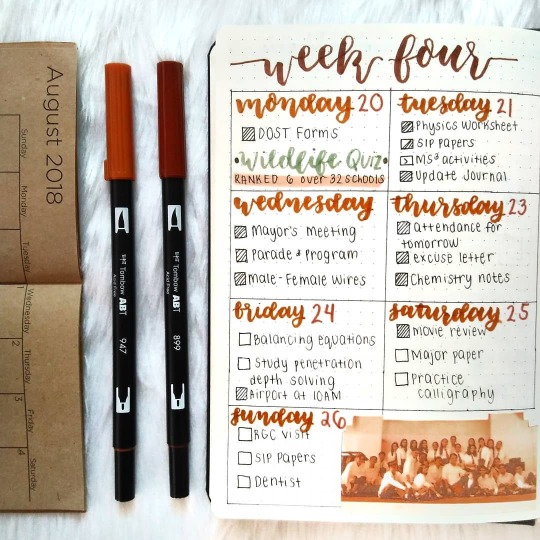 August 2018
Sunday
Monday
Tuesday
1
Wednesday
2
Thursday
3
Friday
4
Saturday
Tombow ABT
Acid Free
947
Tombow ABT
Acid Free
899
week four
monday 20
DOST Forms
•Wildlife Quiz•
RANKED 6 over 32 schools
tuesday 21
Physics Worksheet
SIP Papers
MS³ activities
Update Journal
wednesday
Mayor's Meeting
Parade & Program
Male-Female Wires
thursday 23
attendance for
tomorrow
excuse letter
Chemistry notes
friday 24
Balancing equations
Study penetration
depth solving
Airport at 10AM
saturday 25
movie review
Major paper
Practice
calligraphy
sunday 26
visit
SIP Papers
Dentist